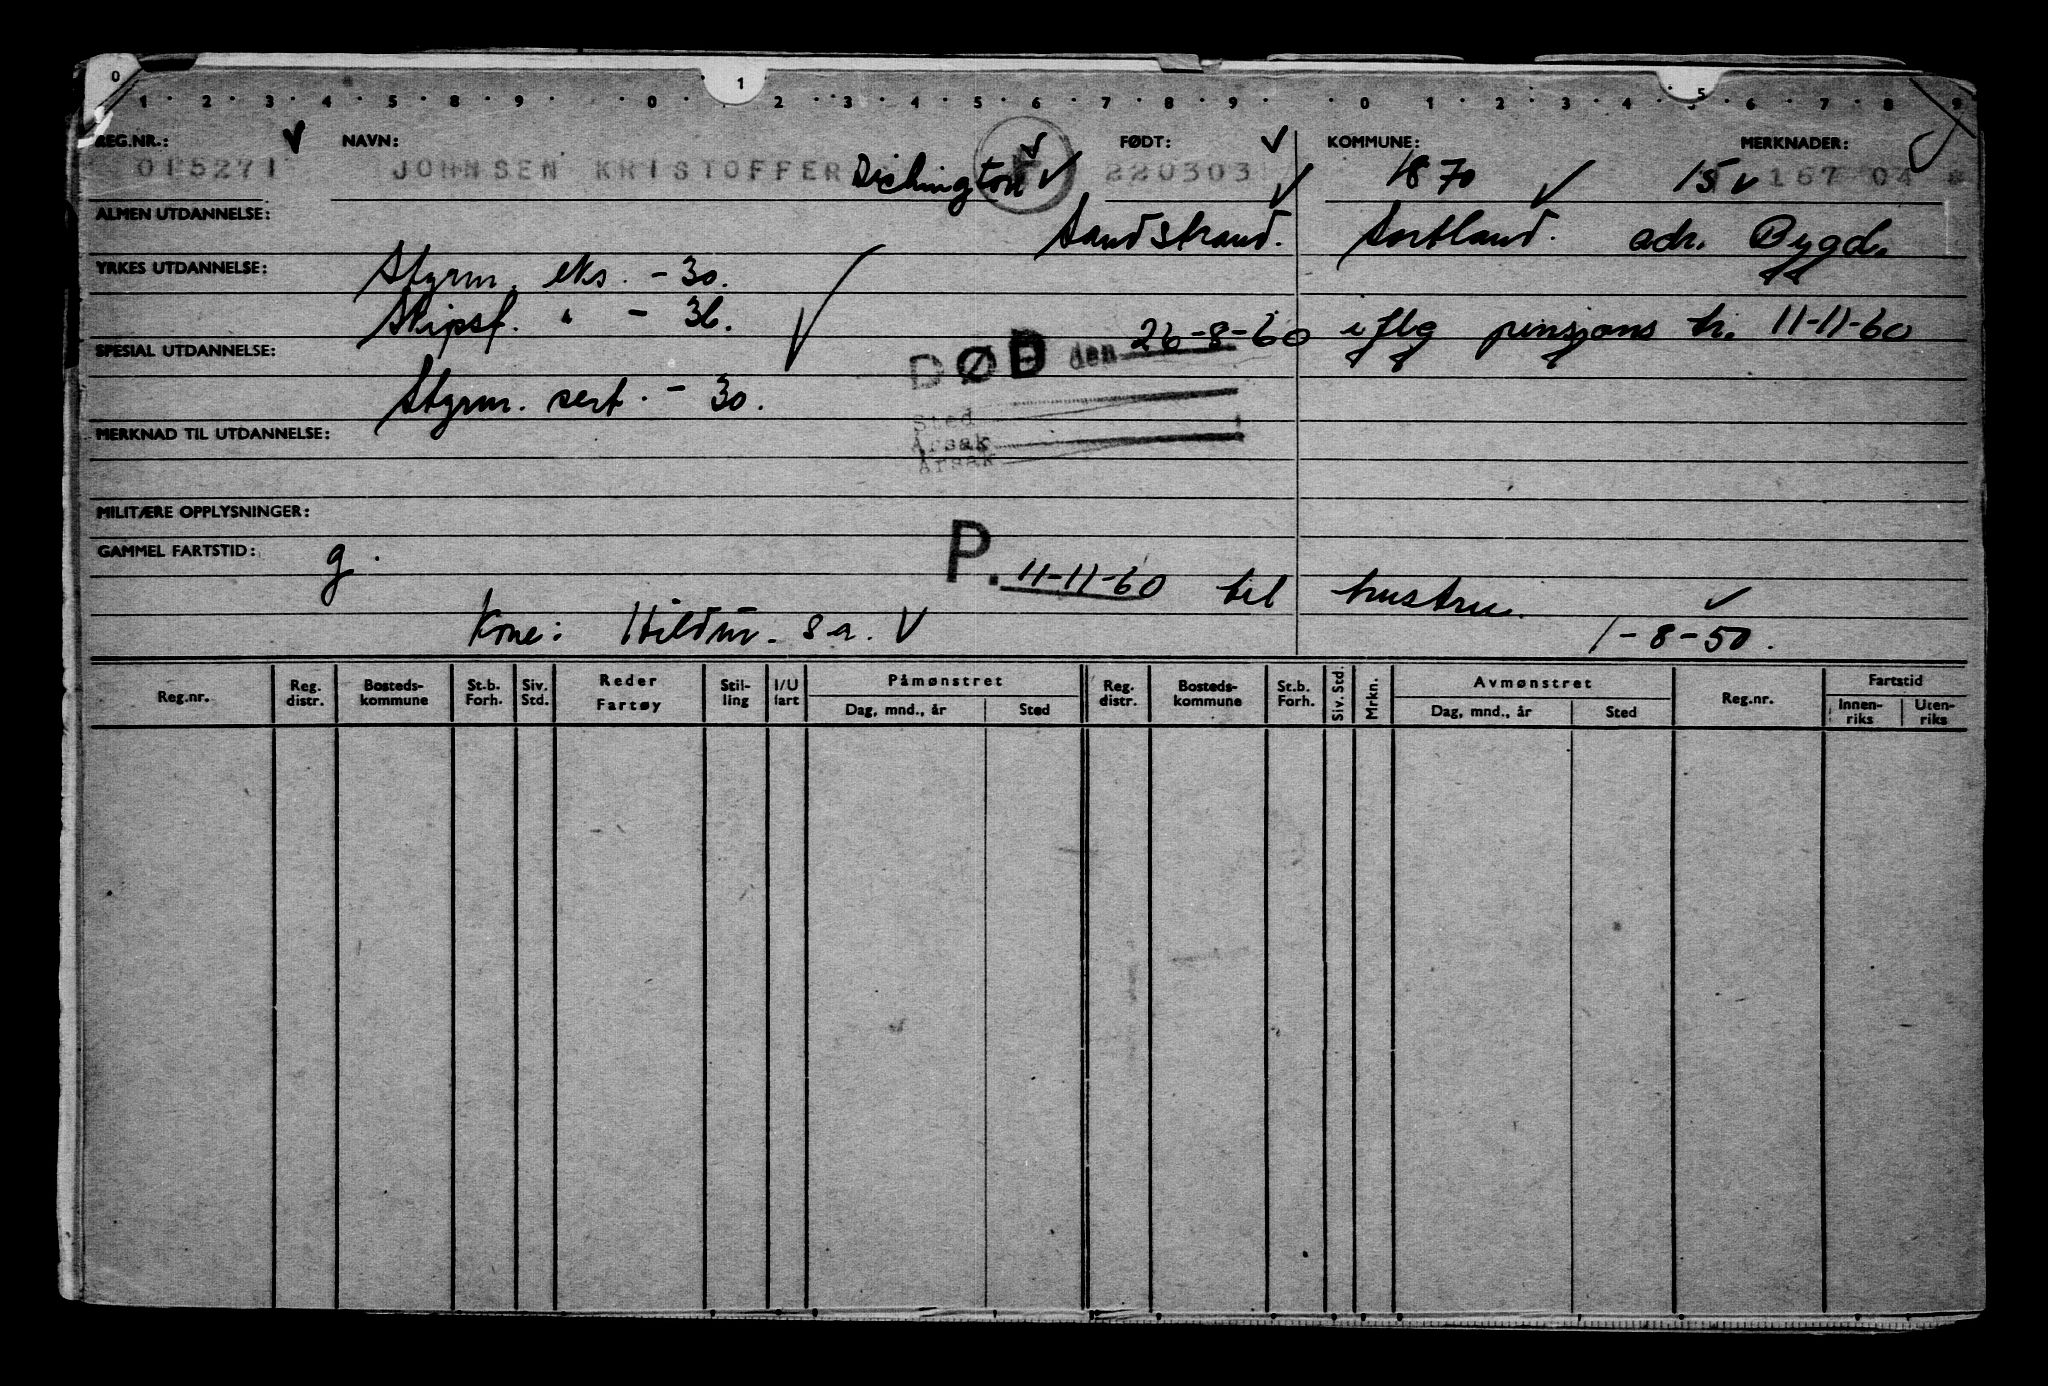 0 1 5
1 2 3 4 5 8 9 0 2 3 4 5 6 7 8 9 0 1 2 3 4 6 7 8 9
REG.NR.: NAVN: FØDT: KOMMUNE: MERKNADER:
015271 JOHNSEN KRISTOFFER 220303 1870 15 167 04
ALMEN UTDANNELSE: Sandstrand. Sortland. adr. Bygd.
YRKES UTDANNELSE: Styrm. eks. - 30.
Skipsf. " - 36.
DØD den 26-8-60 iflg pensjons tr. 11-11-60
SPESIAL UTDANNELSE:
Styrm. sert. - 30.
Sted
MERKNAD TIL UTDANNELSE: Årsak
Årsak
MILITÆRE OPPLYSNINGER:
GAMMEL FARTSTID: g.
P. 11-11-60 til hustru.
Kone: Hildur. s.a. 1-8-50.
Reg.nr. Reg. distr. Bosteds-kommune St.b. Forh. Siv. Std. Reder Fartøy Stil-ling I/U fart Påmønstret Dag, mnd., år Sted Reg. distr. Bosteds-kommune St.b. Forh. Siv. Std. Mrkn. Avmønstret Dag, mnd., år Sted Reg.nr. Fartstid Innen-riks Uten-riks